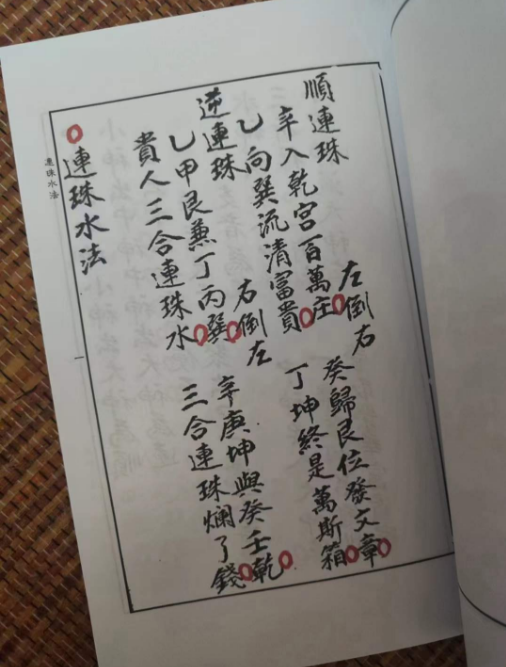 順連珠 左倒右
辛入乾宮百萬庄 癸歸艮位發文章
乙向巽流清富貴 丁坤終是萬斯箱
逆連珠 右倒左
乙甲艮兼丁丙巽 辛庚坤與癸壬乾
貴人三合連珠水 三合連珠爛了錢
連珠水法
連珠水法
一